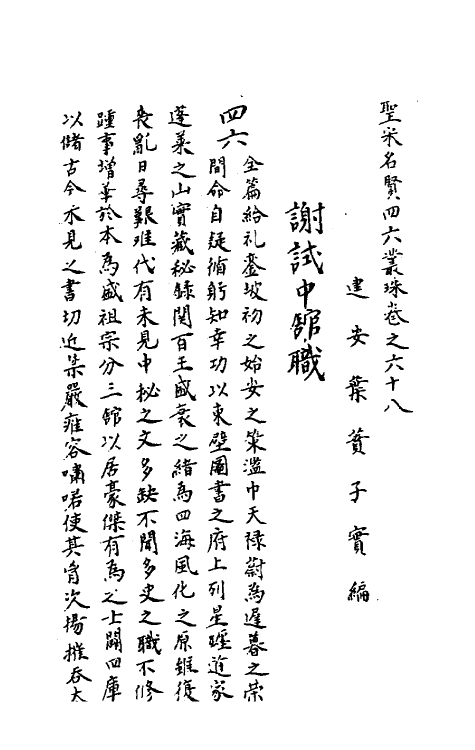 聖宋名賢四六叢珠卷之六十八
建安葉蕡子實編
謝試中館職
四六
全篇給札鑾坡初之始安之策濫中天祿蔚為遲暮之榮
間命自疑循躬知幸功以東壁圖書之府上列星躔道家
蓬萊之山實藏秘錄関百王盛衰之緒為四海風化之原雖復
喪亂日尋艱難代有未見中秘之文多缺不聞多史之職不修
踵事增華於本為盛祖宗分三館以居豪傑有為之士闢四庫
以儲古今未見之書切近栄嚴雍容嘯喏使其胷次揚搉吞太